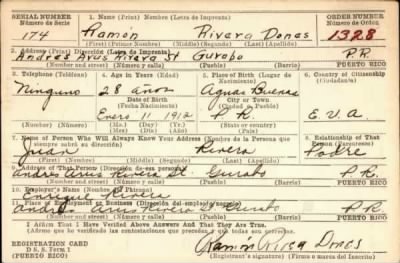 SERIAL NUMBER 1. Name (Print) (Letra de Imprenta) ORDER NUMBER
Número de Serie Número de Orden
174 Ramón Rivera Dones 1328
(First) (Primer Nombre) (Middle) (Segundo) (Last) (Apellido)
2. Address (Print) (Dirección) (Letra de Imprenta)
Andres Arus Rivera St Gurabo P.R.
(Number and street) (Número y calle) (Barrio) PUERTO RICO
3. Telephone (Teléfono) 4. Age in Years (Edad) 5. Place of Birth (Lugar de Nacimiento) 6. Country of Citizenship (Ciudadanía)
Ninguno 28 años Aguas Buenas
Date of Birth City or Town
Fecha Nacimiento (Ciudad o Pueblo)
Enero 11, 1912 P.R. E.U.A
(Mo.) (Day) (Yr.) State or country
(Mes.) (Día) (Año) Estado o país)
7. Name of Person Who Will Always Know Your Address (Nombre de la Persona que siempre sabrá su dirección) 8. Relationship of That Person
Juan Rivera Padre
(First) (Primer nombre) (Middle) (Segundo) (Last) (Apellido)
9. Address of That Person (Dirección de esa persona)
Andres Arus Rivera St. Gurabo P.R.
(Number and street) (Número y calle) (Barrio) PUERTO RICO
10. Employer's Name (Nombre del Patrono)
Enrique Rivera
11. Place of Employment or Business (Dirección del empleo o negocio)
Andres Arus Rivera St Gurabo P.R.
(Number and street) (Número y calle) (Barrio) PUERTO RICO
I Affirm That I Have Verified Above Answers And That They Are True.
Afirmo que he verificado las contestaciones que preceden y que todas son correctas.
REGISTRATION CARD
D. S. S. Form 1
(PUERTO RICO)
Ramón Rivera Dones
(Registrant's signature) (Firma del registrado)